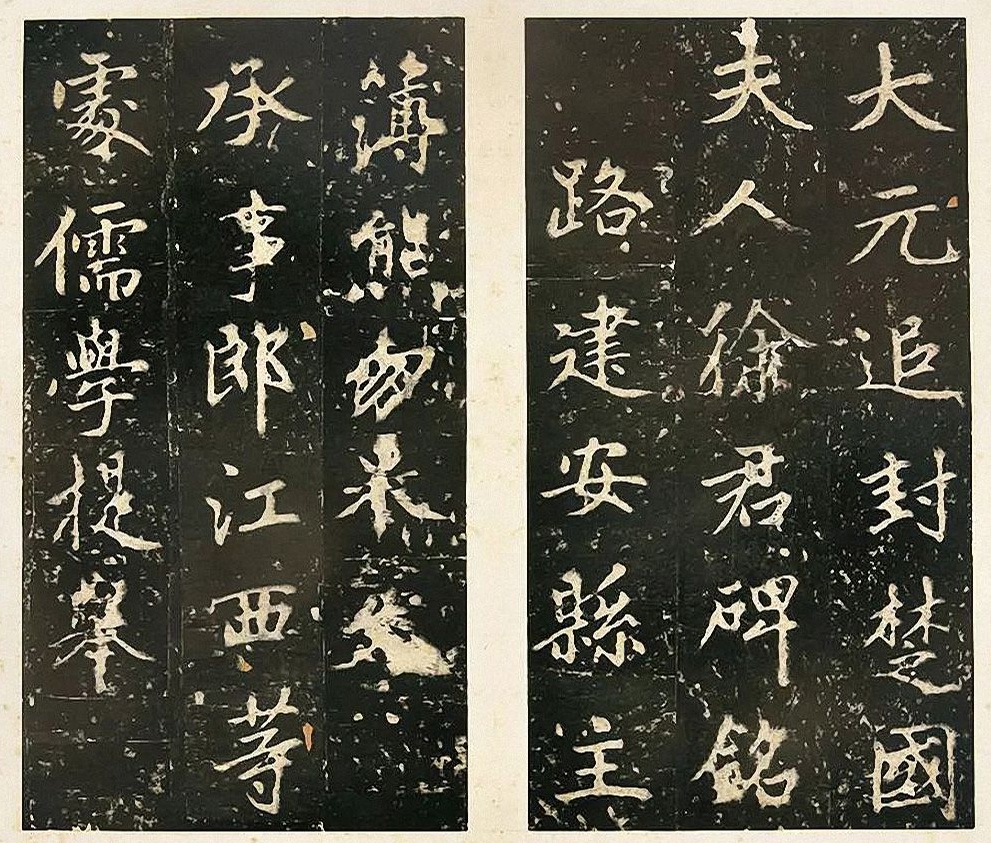 大元追封楚國
夫人徐君碑銘
路建安縣主
簿熊勿
承事郎江西等
處儒學提舉